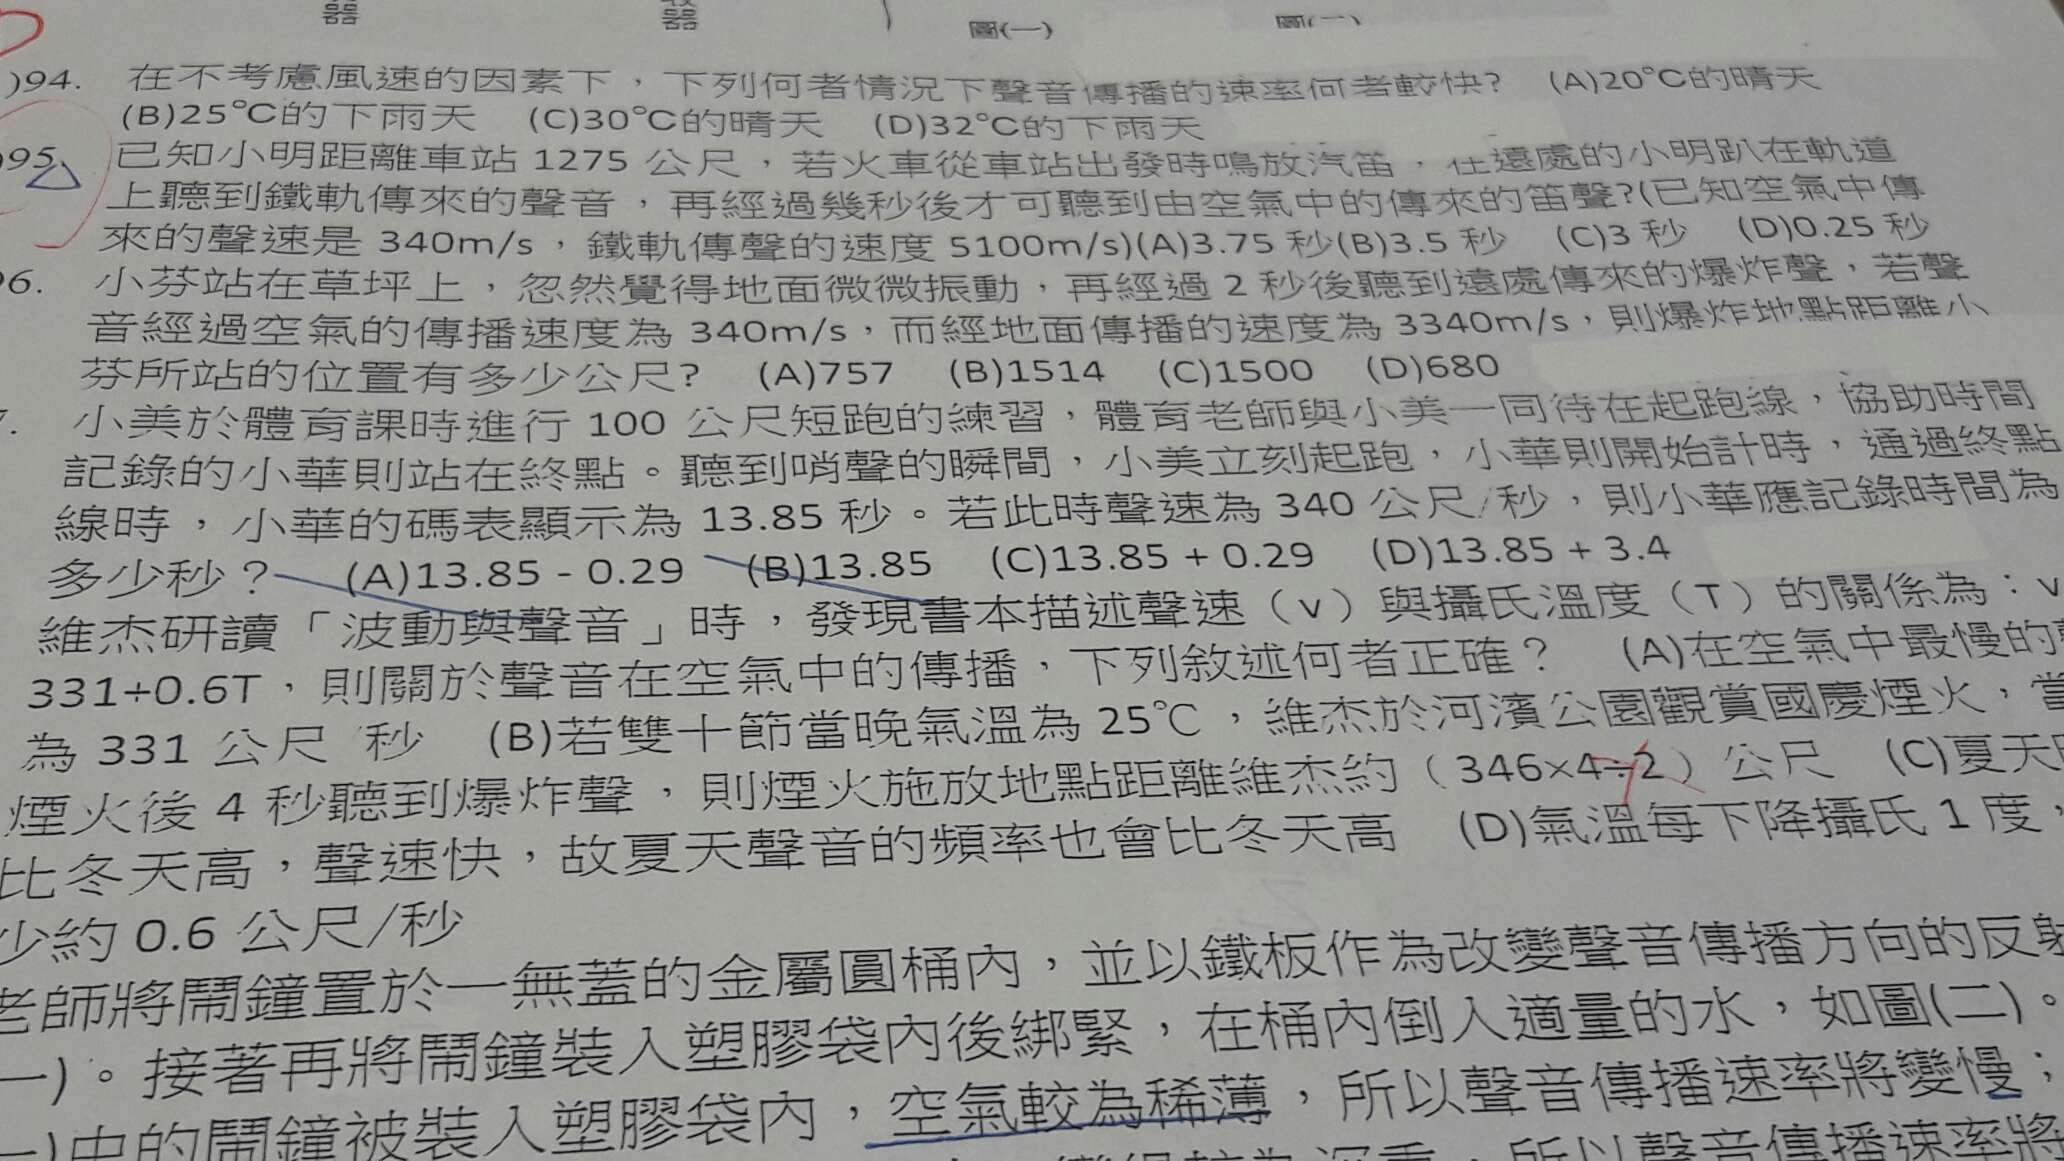 器 器 圖(一)
)94. 在不考慮風速的因素下，下列何者情況下聲音傳播的速率何者較快? (A)20°C的晴天
(B)25°C的下雨天 (C)30°C的晴天 (D)32°C的下雨天
)95. 已知小明距離車站 1275 公尺，若火車從車站出發時鳴放汽笛，在遠處的小明趴在軌道
上聽到鐵軌傳來的聲音，再經過幾秒後才可聽到由空氣中的傳來的笛聲?(已知空氣中傳
來的聲速是 340m/s，鐵軌傳聲的速度 5100m/s)(A)3.75 秒(B)3.5 秒 (C)3 秒 (D)0.25 秒
96. 小芬站在草坪上，忽然覺得地面微微振動，再經過 2 秒後聽到遠處傳來的爆炸聲，若聲
音經過空氣的傳播速度為 340m/s，而經地面傳播的速度為 3340m/s，則爆炸地點距離小
芬所站的位置有多少公尺? (A)757 (B)1514 (C)1500 (D)680
小美於體育課時進行 100 公尺短跑的練習，體育老師與小美一同待在起跑線，協助時間
記錄的小華則站在終點。聽到哨聲的瞬間，小美立刻起跑，小華則開始計時，通過終點
線時，小華的碼表顯示為 13.85 秒。若此時聲速為 340 公尺/秒，則小華應記錄時間為
多少秒？ (A)13.85 - 0.29 (B)13.85 (C)13.85 + 0.29 (D)13.85 + 3.4
維杰研讀「波動與聲音」時，發現書本描述聲速（v）與攝氏溫度（T）的關係為：v
331+0.6T，則關於聲音在空氣中的傳播，下列敘述何者正確？ (A)在空氣中最慢的
為 331 公尺/秒 (B)若雙十節當晚氣溫為 25℃，維杰於河濱公園觀賞國慶煙火，當
煙火後 4 秒聽到爆炸聲，則煙火施放地點距離維杰約（346×4÷2）公尺 (C)夏天
比冬天高，聲速快，故夏天聲音的頻率也會比冬天高 (D)氣溫每下降攝氏 1 度，
少約 0.6 公尺/秒
老師將鬧鐘置於一無蓋的金屬圓桶內，並以鐵板作為改變聲音傳播方向的反射
一)。接著再將鬧鐘裝入塑膠袋內後綁緊，在桶內倒入適量的水，如圖(二)。
一)中的鬧鐘被裝入塑膠袋內，空氣較為稀薄，所以聲音傳播速率將變慢；
，所以聲音傳播速率將